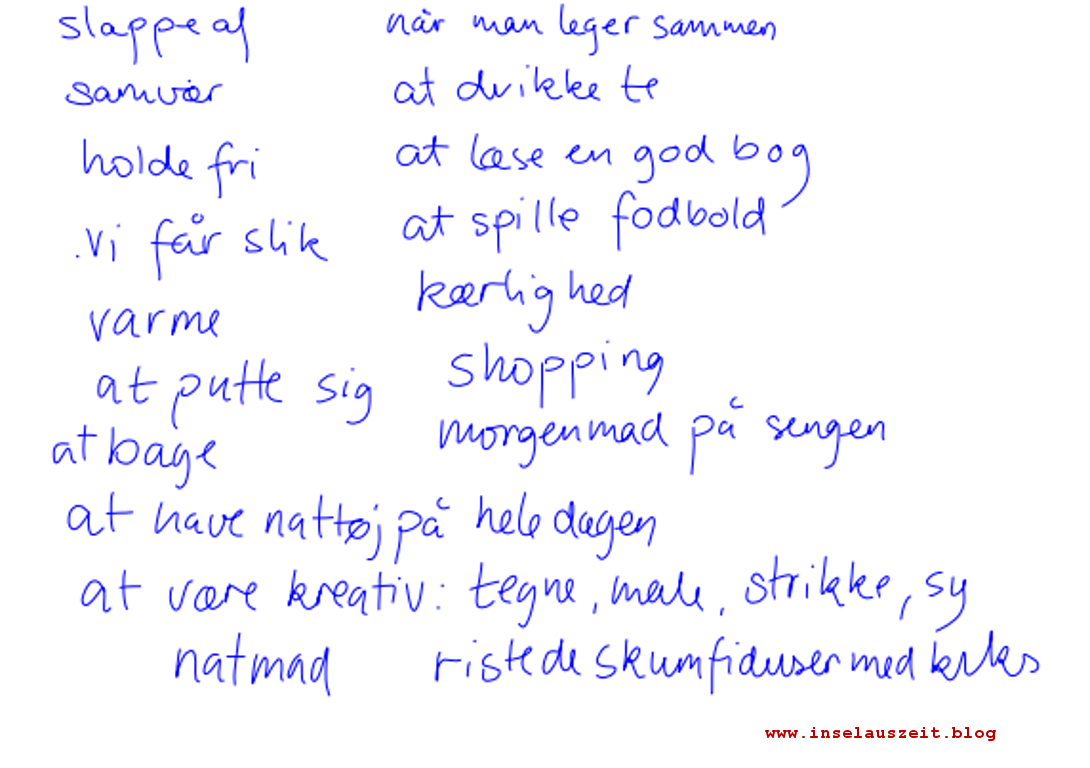 slappe af
når man leger sammen
samvær
at drikke te
holde fri
at læse en god bog
vi får slik
at spille fodbold
varme
kærlighed
at putte sig
shopping
at bage
morgenmad på sengen
at have nattøj på hele dagen
at være kreativ: tegne, male, strikke, sy
natmad
ristede skumfiduser med kiks
www.inselauszeit.blog